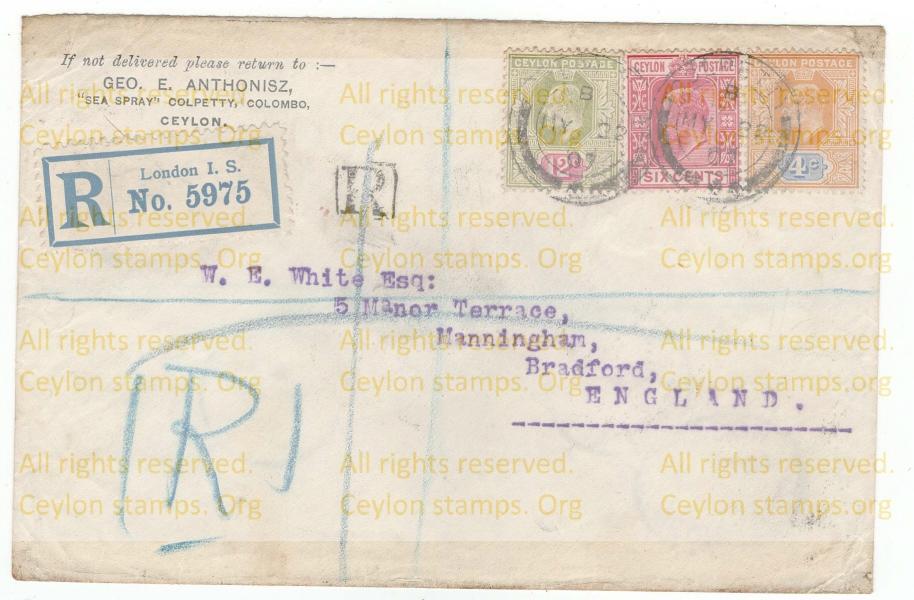 If not delivered please return to :—
GEO. E. ANTHONISZ,
"SEA SPRAY" COLPETTY, COLOMBO,
CEYLON.
R
London I. S.
No. 5975
R
CEYLON POSTAGE
12
CEYLON POSTAGE
SIX CENTS
CEYLON POSTAGE
4c
B
MY
07
B
MY
W. E. White Esq:
5 Manor Terrace,
Manningham,
Bradford,
ENGLAND.
R
All rights reserved. All rights reserved. All rights reserved.
Ceylon stamps. Org Ceylon stamps. Org Ceylon stamps. Org
All rights reserved. All rights reserved. All rights reserved.
Ceylon stamps. Org Ceylon stamps. Org Ceylon stamps. Org
All rights reserved. All rights reserved. All rights reserved.
Ceylon stamps. Org Ceylon stamps. Org Ceylon stamps. Org
All rights reserved. All rights reserved. All rights reserved.
Ceylon stamps. Org Ceylon stamps. Org Ceylon stamps. Org